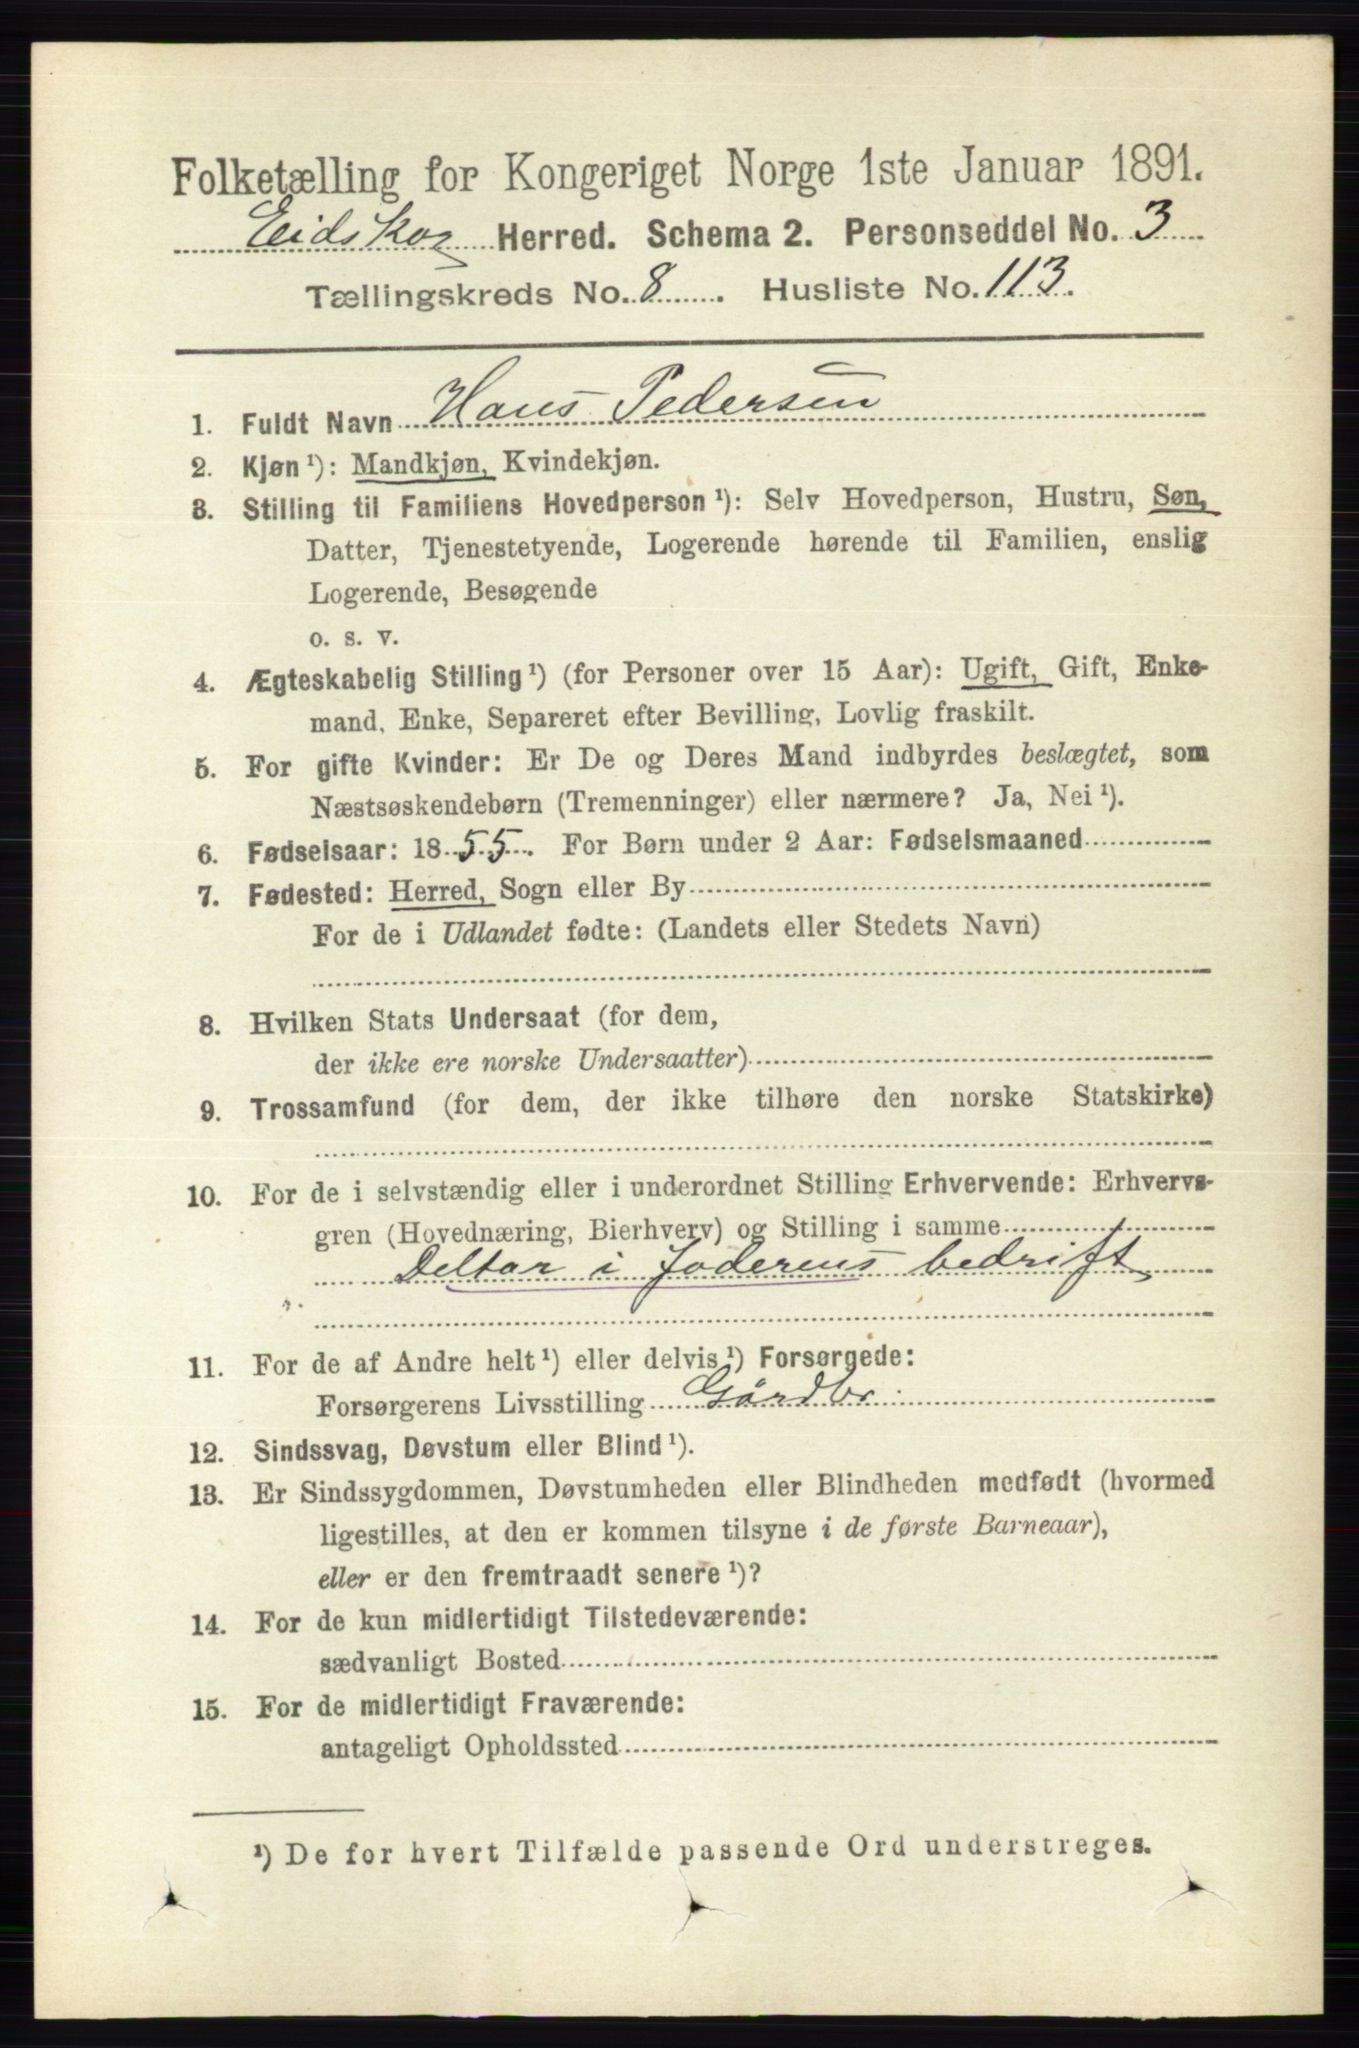 Folketælling for Kongeriget Norge 1ste Januar 1891.
Eidskog Herred. Schema 2. Personseddel No. 3
Tællingskreds No. 8. Husliste No. 113.
1. Fuldt Navn Hans Pedersen
2. Kjøn ¹): Mandkjøn, Kvindekjøn.
3. Stilling til Familiens Hovedperson ¹): Selv Hovedperson, Hustru, Søn,
Datter, Tjenestetyende, Logerende hørende til Familien, enslig
Logerende, Besøgende
o. s. v.
4. Ægteskabelig Stilling ¹) (for Personer over 15 Aar): Ugift, Gift, Enke-
mand, Enke, Separeret efter Bevilling, Lovlig fraskilt.
5. For gifte Kvinder: Er De og Deres Mand indbyrdes beslægtet, som
Næstsøskendebørn (Tremenninger) eller nærmere? Ja, Nei ¹).
6. Fødselsaar: 1855. For Børn under 2 Aar: Fødselsmaaned
7. Fødested: Herred, Sogn eller By
For de i Udlandet fødte: (Landets eller Stedets Navn)
8. Hvilken Stats Undersaat (for dem,
der ikke ere norske Undersaatter)
9. Trossamfund (for dem, der ikke tilhøre den norske Statskirke)
10. For de i selvstændig eller i underordnet Stilling Erhvervende: Erhvervs-
gren (Hovednæring, Bierhverv) og Stilling i samme
Deltar i Faderens bedrift
11. For de af Andre helt ¹) eller delvis ¹) Forsørgede:
Forsørgerens Livsstilling Gårdbr.
12. Sindssvag, Døvstum eller Blind ¹).
13. Er Sindssygdommen, Døvstumheden eller Blindheden medfødt (hvormed
ligestilles, at den er kommen tilsyne i de første Barneaar),
eller er den fremtraadt senere ¹)?
14. For de kun midlertidigt Tilstedeværende:
sædvanligt Bosted
15. For de midlertidigt Fraværende:
antageligt Opholdssted
¹) De for hvert Tilfælde passende Ord understreges.